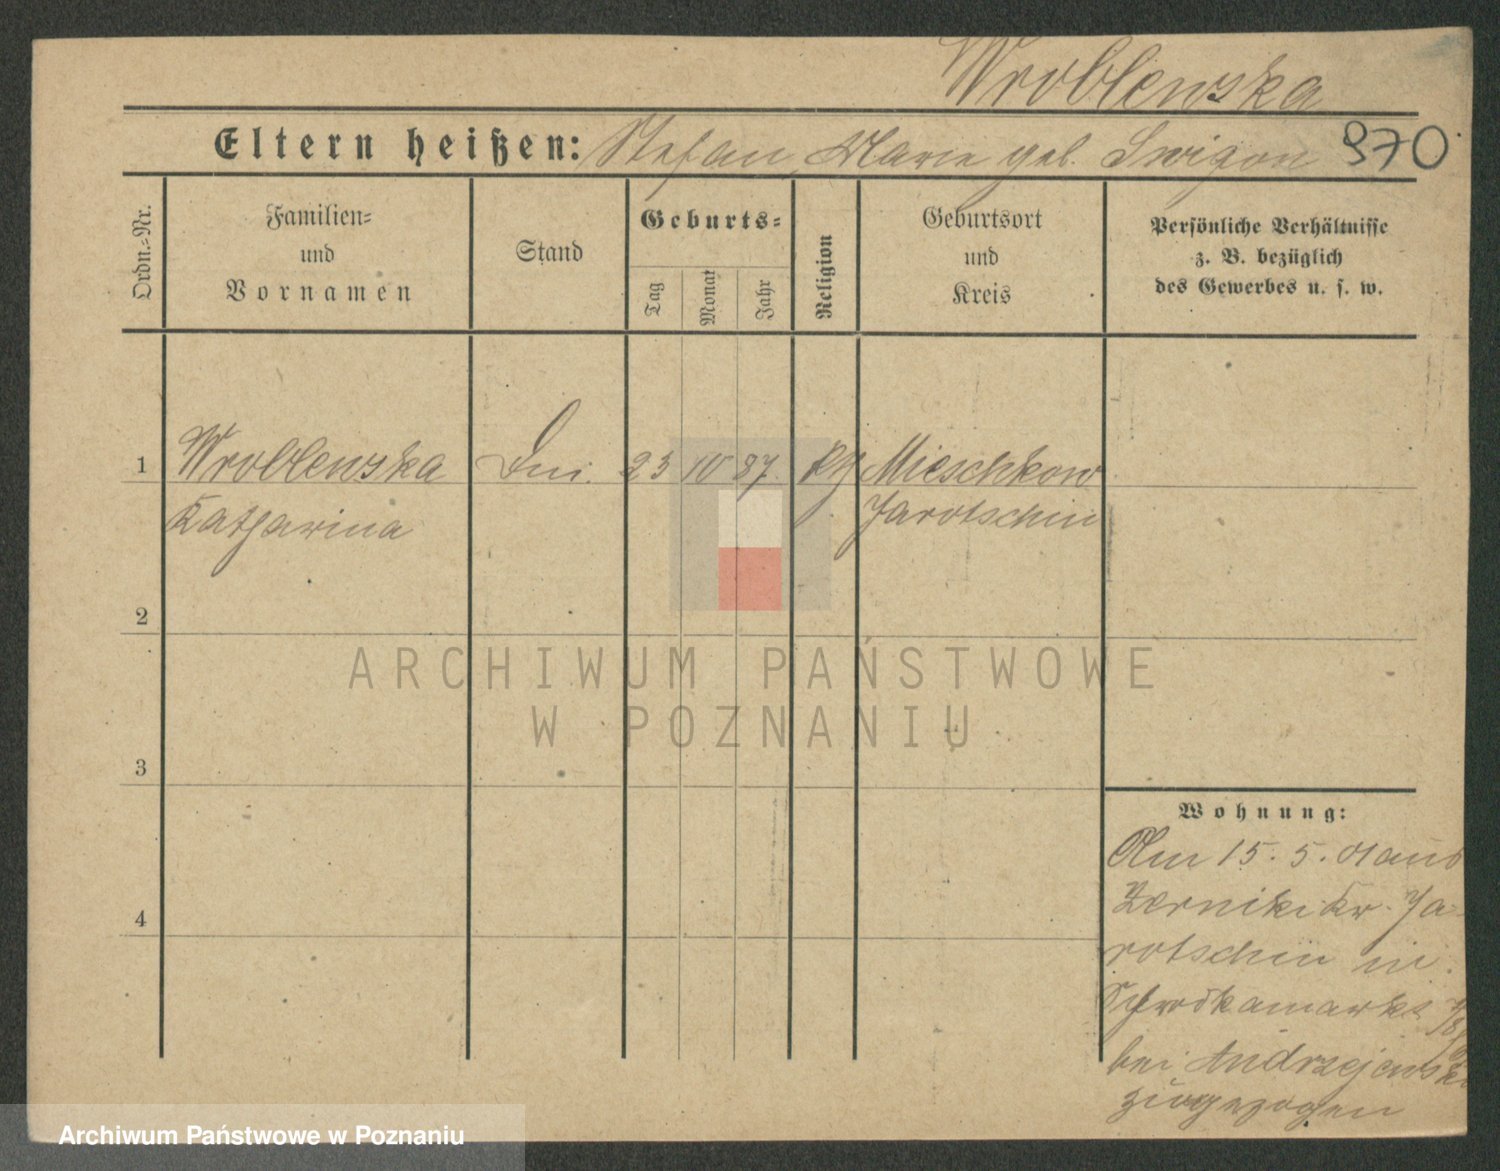 Wroblewska
Eltern heißen: Stefan, Marie geb. Swigon 970
Ordn.-Nr.
Familien-
und
Vornamen
Stand
Geburts-
Tag
Monat
Jahr
Religion
Geburtsort
und
Kreis
Persönliche Verhältnisse
z. B. bezüglich
des Gewerbes u. s. w.
1 Wroblewska 23 IV 87. Mieschkow
Katharina Jarotschin
2
3
4
ARCHIWUM PAŃSTWOWE
W POZNANIU
Wohnung:
Am 15. 5. 01 aus
Zerniki Kr. Ja-
rotschin in
Schrodkamarkt
bei Andrzejewski
zugezogen
Archiwum Państwowe w Poznaniu